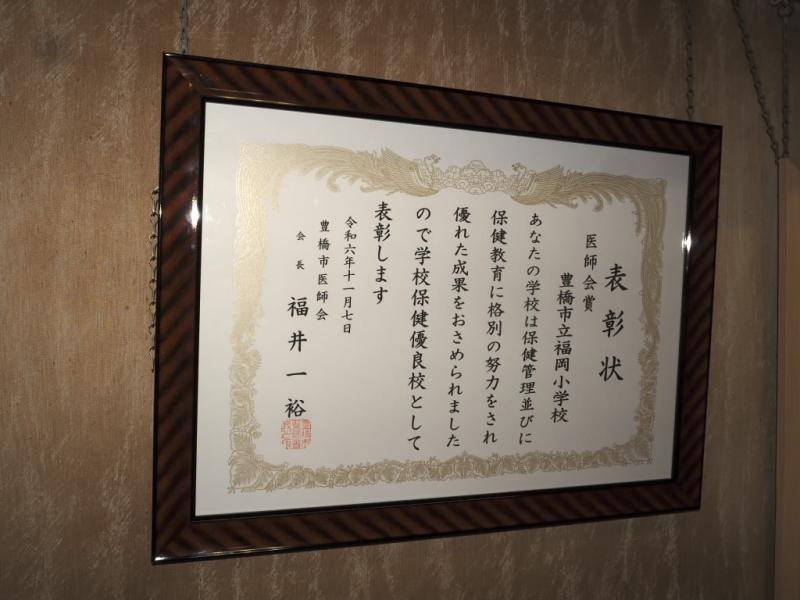 表彰状
医師会賞
豊橋市立福岡小学校
あなたの学校は保健管理並びに
保健教育に格別の努力をされ
優れた成果をおさめられました
ので学校保健優良校として
表彰します
令和六年十一月七日
豊橋市医師会
会長 福井一裕